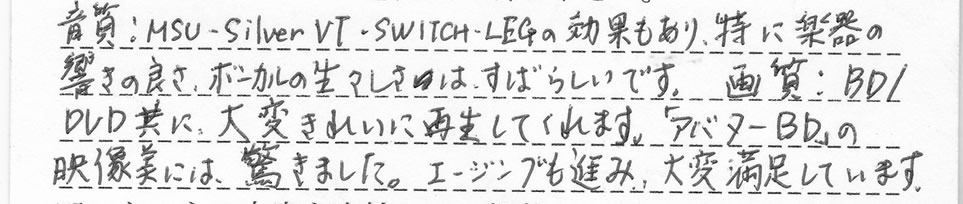 音質：MSU-Silver VT・SWITCH・LEGの効果もあり、特に楽器の
響きの良さ、ボーカルの生々しさは、すばらしいです。 画質：BD/
DVD共に、大変きれいに再生してくれます。「アバターBD」の
映像美には、驚きました。エージングも進み、大変満足しています。